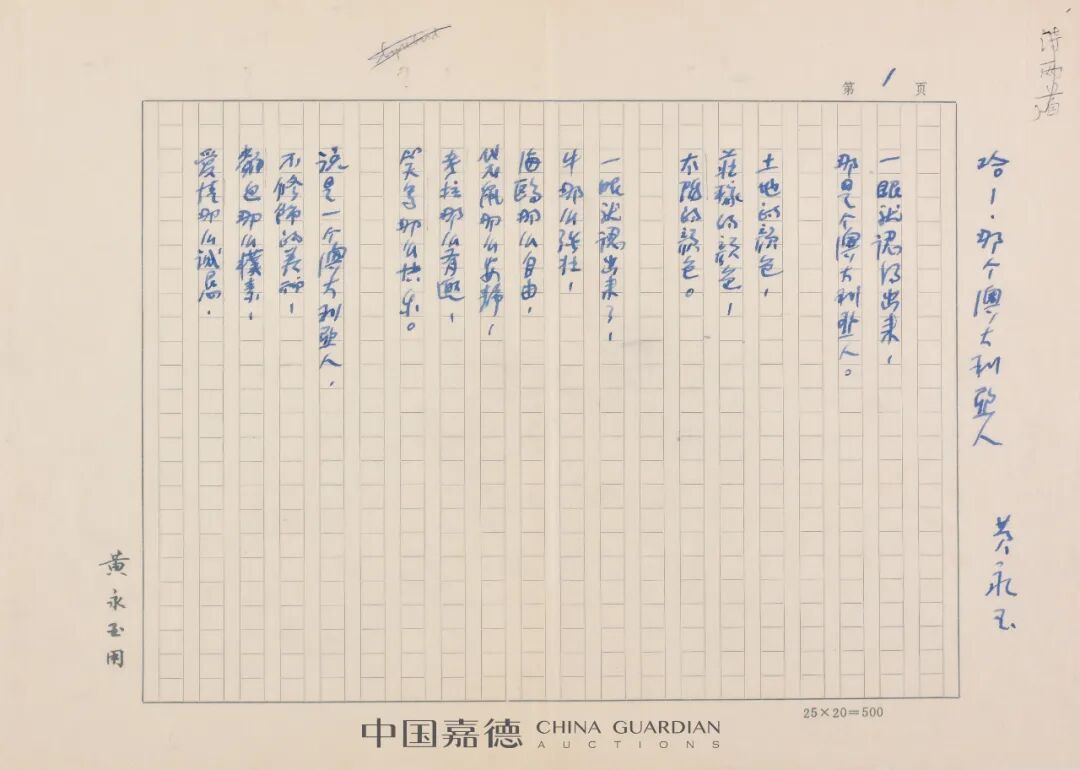 诗两首
哈!那个澳大利亚人
黄永玉
第1页
一眼就认得出来,
那是个澳大利亚人。
土地的颜色,
莊稼的颜色,
太阳的颜色。
一眼就认出来了,
牛那么强壮,
海鸥那么自由,
袋鼠那么安静,
考拉那么有趣,
笑鸟那么快乐。
说是一个澳大利亚人,
不修饰的美丽,
颜色那么樸素,
爱情那么诚恳.
黄永玉用
25×20=500
中国嘉德 CHINA GUARDIAN
AUCTIONS